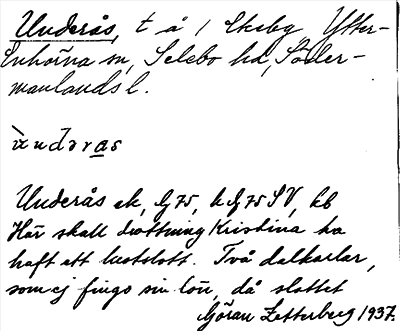 Underås, t å / Ekeby Ytter-
Enhörna sn, Selebo hd, Söder-
manlands l.
ùndəras
Underås ek, G 75, k G 75 SV, kb
Här skall drottning Kristina ha
haft ett lustslott. Två dalkarlar,
som ej fingo sin lön, då slottet
Göran Zetterberg 1937.